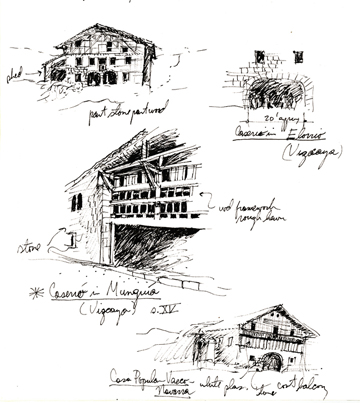 shed
part stone part wood
20' aprox
Caserio in Elorrio
(Vizcaya)
wd framework
rough hewn
stone
Caserio in Munguia
(Vizcaya) s. XV
Casa Popular Vasco
Navarra
white plas.
stone
cont balcony